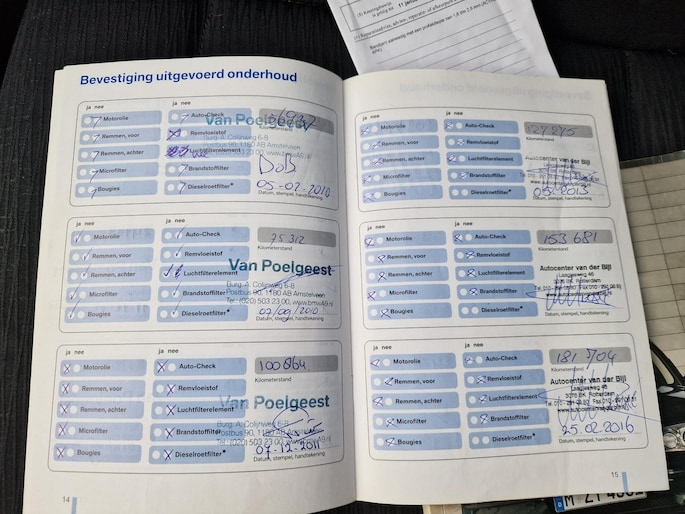 11 januari
Bevestiging uitgevoerd onderhoud
ja nee
ja nee
Motorolie
Auto-Check
Remmen, voor
Remvloeistof
Remmen, achter
Luchtfilterelement
Microfilter
Brandstoffilter
Bougies
Dieselroetfilter*
Van Poelgeest
Burg. A. Colijnweg 6-8
Postbus 90, 1180 AB Amstelveen
BoB
05-02-2010
Datum, stempel, handtekening
ja nee
ja nee
Motorolie
Auto-Check
Remmen, voor
Remvloeistof
Remmen, achter
Luchtfilterelement
Microfilter
Brandstoffilter
Bougies
Dieselroetfilter*
25 312
Kilometerstand
Van Poelgeest
Burg. A. Colijnweg 6-8
Postbus 90, 1180 AB Amstelveen
Tel.: (020) 503 23 00, www.bmwAS.nl
Datum, stempel, handtekening
ja nee
ja nee
Motorolie
Auto-Check
Remmen, voor
Remvloeistof
Remmen, achter
Luchtfilterelement
Microfilter
Brandstoffilter
Bougies
Dieselroetfilter*
100864
Kilometerstand
Van Poelgeest
Burg. A. Colijnweg 6-8
Postbus 90, 1180 AB Amstelveen
Tel.: (020) 503 23 00
07-12-2011
Datum, stempel, handtekening
14
ja nee
ja nee
Motorolie
Auto-Check
Remmen, voor
Remvloeistof
Remmen, achter
Luchtfilterelement
Microfilter
Brandstoffilter
Bougies
Dieselroetfilter*
Kilometerstand
Autocenter van der Bijl
Datum, stempel, handtekening
ja nee
ja nee
Motorolie
Auto-Check
Remmen, voor
Remvloeistof
Remmen, achter
Luchtfilterelement
Microfilter
Brandstoffilter
Bougies
Dieselroetfilter*
153 681
Kilometerstand
Autocenter van der Bijl
Laagjesweg 46
3076 BK Rotterdam
Datum, stempel, handtekening
ja nee
ja nee
Motorolie
Auto-Check
Remmen, voor
Remvloeistof
Remmen, achter
Luchtfilterelement
Microfilter
Brandstoffilter
Bougies
Dieselroetfilter*
181 704
Kilometerstand
Autocenter van der Bijl
Laagjesweg 46
3076 BK Rotterdam
25.02.2016
Datum, stempel, handtekening
15